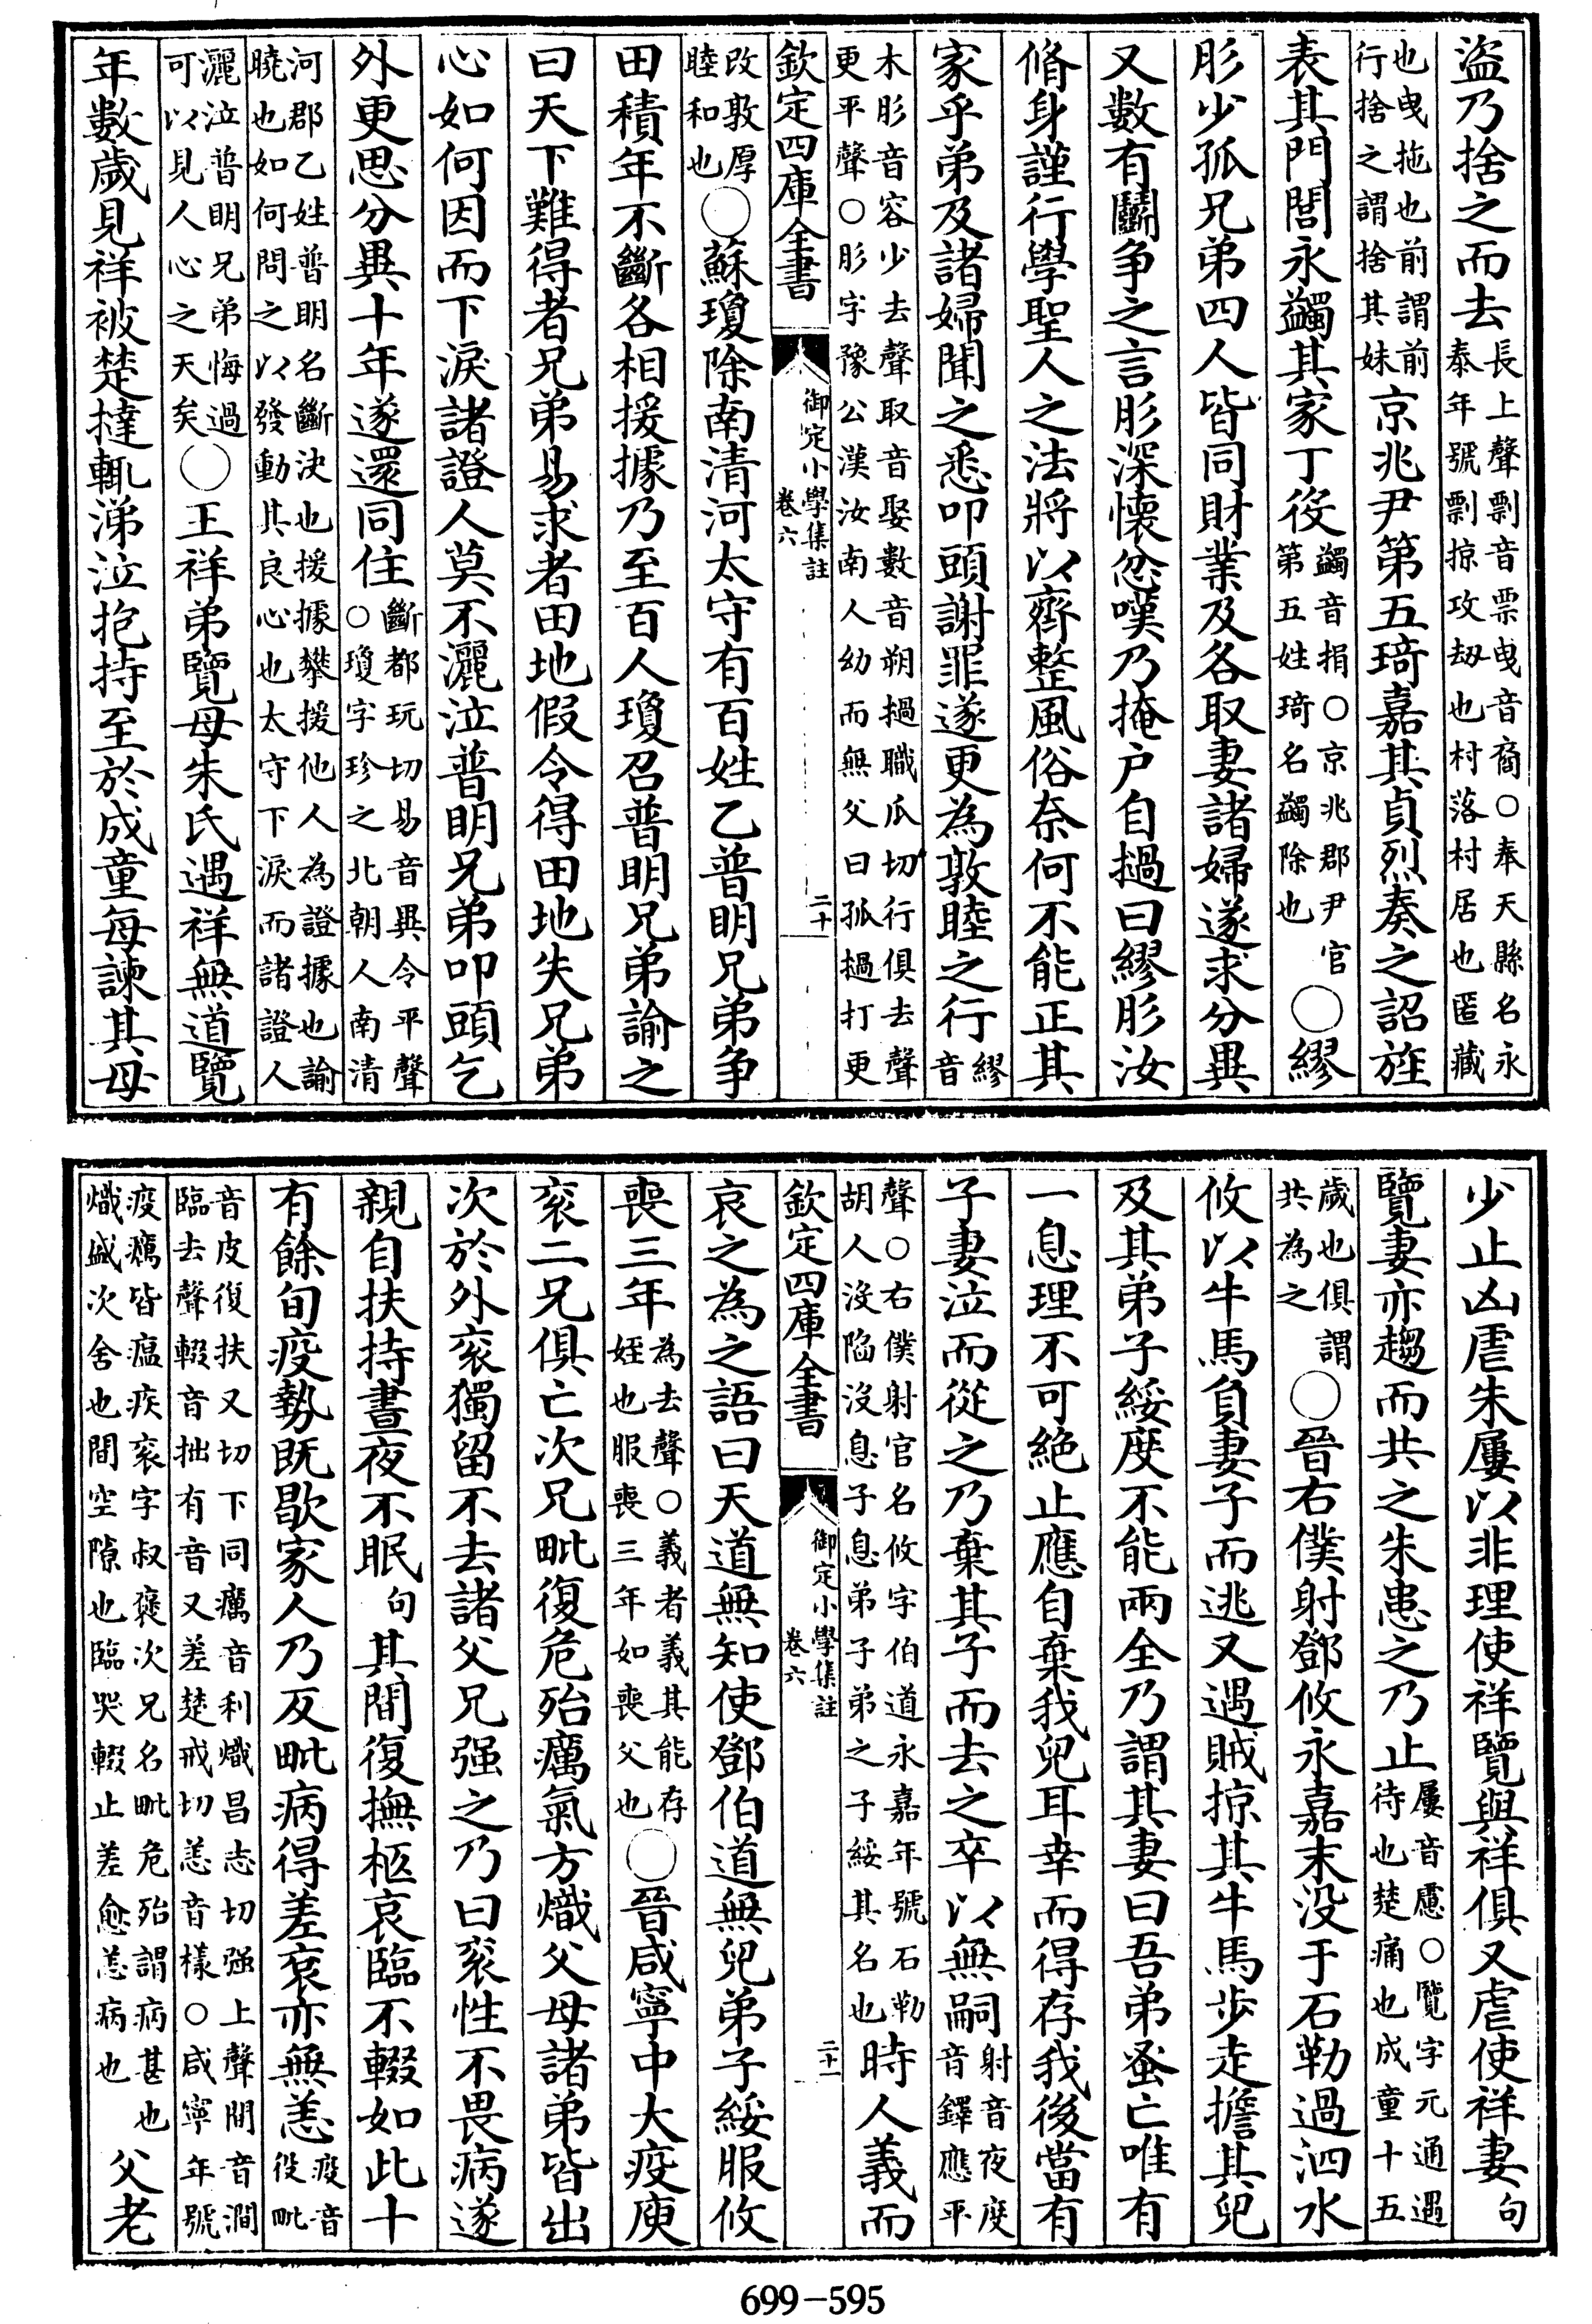 盜乃捨之而去長上聲剽音票曳音裔○奉天縣名永泰年號剽掠攻劫也村落村居也匿藏
也曳拖也前謂前行捨之謂捨其妹京兆尹第五琦嘉其貞烈奏之詔旌
表其門閭永蠲其家丁役蠲音捐○京兆郡尹官第五姓琦名蠲除也○繆
肜少孤兄弟四人皆同財業及各取妻諸婦遂求分異
又數有鬬争之言肜深懷忿嘆乃掩户自撾曰繆肜汝
脩身謹行學聖人之法將以齊整風俗奈何不能正其
家乎弟及諸婦聞之悉叩頭謝罪遂更為敦睦之行繆音
木肜音容少去聲取音娶數音朔撾職瓜切行俱去聲更平聲○肜字豫公漢汝南人幼而無父曰孤撾打更
欽定四庫全書 御定小學集註 卷六 二十
改敦厚睦和也○蘇瓊除南清河太守有百姓乙普明兄弟争
田積年不斷各相援據乃至百人瓊召普明兄弟諭之
曰天下難得者兄弟易求者田地假令得田地失兄弟
心如何因而下淚諸證人莫不灑泣普明兄弟叩頭乞
外更思分異十年遂還同住斷都玩切易音異令平聲○瓊字珍之北朝人南清
河郡乙姓普明名斷决也援據攀援他人為證據也諭曉也如何問之以發動其良心也太守下淚而諸證人
灑泣普明兄弟悔過可以見人心之天矣○王祥弟覽母朱氏遇祥無道覽
年數歲見祥被楚撻輒涕泣抱持至於成童每諫其母
少止凶虐朱屢以非理使祥覽與祥俱又虐使祥妻句
覽妻亦趨而共之朱患之乃止屢音慮○覽字元通遇待也楚痛也成童十五
歲也俱謂共為之○晉右僕射鄧攸永嘉末没于石勒過泗水
攸以牛馬負妻子而逃又遇賊掠其牛馬步走擔其兒
及其弟子綏度不能兩全乃謂其妻曰吾弟蚤亡唯有
一息理不可絶止應自棄我兒耳幸而得存我後當有
子妻泣而從之乃棄其子而去之卒以無嗣射音夜度音鐸應平
聲○右僕射官名攸字伯道永嘉年號石勒胡人没陷没息子息弟子弟之子綏其名也時人義而
欽定四庫全書 御定小學集註 卷六 二十一
哀之為之語曰天道無知使鄧伯道無兒弟子綏服攸
喪三年為去聲○義者義其能存姪也服喪三年如喪父也○晉咸寧中大疫庾
衮二兄俱亡次兄毗復危殆癘氣方熾父母諸弟皆出
次於外衮獨留不去諸父兄强之乃曰衮性不畏病遂
親自扶持晝夜不眠句其間復撫柩哀臨不輟如此十
有餘旬疫勢既歇家人乃反毗病得差衮亦無恙疫音役毗
音皮復扶又切下同癘音利熾昌志切强上聲間音澗臨去聲輟音拙有音又差楚戒切恙音樣○咸寧年號
疫癘皆瘟疾衮字叔褒次兄名毗危殆謂病甚也熾盛次舍也間空隙也臨哭輟止差愈恙病也父老
699-595